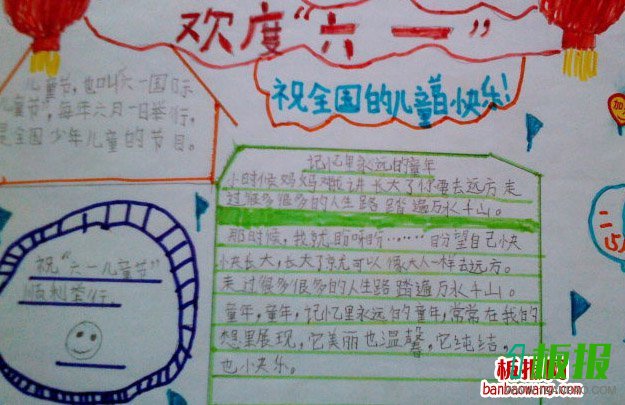 欢度“六一”
祝全国的儿童节快乐!
儿童节,也叫“六一国际
儿童节”,每年六月一日举行,
是全国少年儿童的节日。
祝“六一儿童节”
顺利举行
记忆里永远的童年
小时候妈妈对我讲 长大了你要去远方 走
过很多很多的人生路 踏遍万水千山。
那时候,我就盼呀盼……盼望自己快
快长大,长大了就可以像大人一样去远方。
走过很多很多的人生路 踏遍万水千山。
童年,童年,记忆里永远的童年,常常在我的
想里展现,它美丽也温馨,它纯结,
也小快乐。
加
二
板报
板报网
banbaowang.com